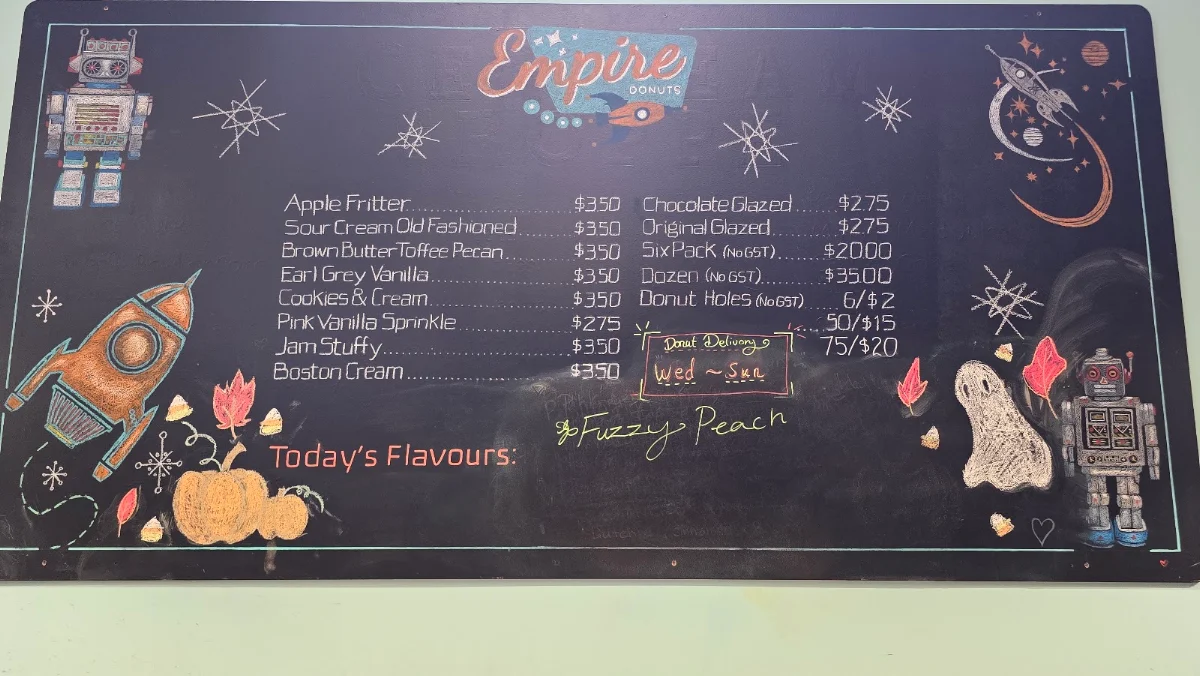 Empire
DONUTS
Apple Fritter..................$3.50
Sour Cream Old Fashioned.........$3.50
Brown Butter Toffee Pecan..........$3.50
Earl Grey Vanilla....................$3.50
Cookies & Cream....................$3.50
Pink Vanilla Sprinkle................$2.75
Jam Stuffy..........................$3.50
Boston Cream.......................$3.50
Chocolate Glazed.......$2.75
Original Glazed..........$2.75
Six Pack (No GST).......$20.00
Dozen (No GST).........$35.00
Donut Holes (No GST).....6/$2
.....50/$15
75/$20
Donut Delivery
Wed ~ Sun
Fuzzy Peach
Today's Flavours: